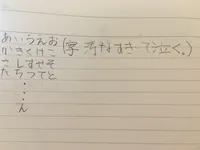 あいうえお(字汚なすぎて泣く。)
かきくけこ
さしすせそ
たちつてと
・
・
・
ん